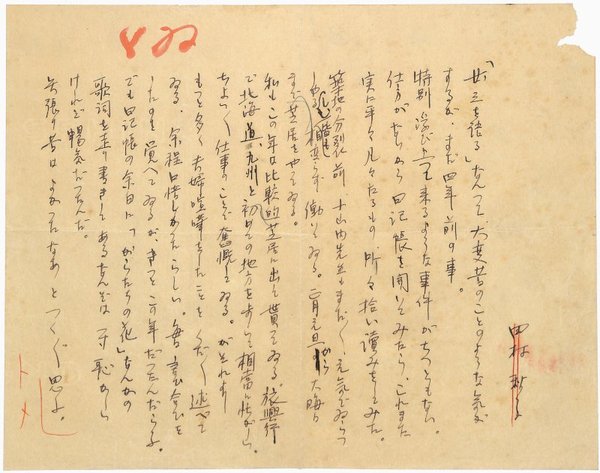 「廿三を語る」なんて、大変昔のことのような気が
するが、まだ四年前の事。
特別浮び上って来るような事件がちっともない。
仕方がないから日記帳を開いてみたら、これまた
実に平々凡々たるもの、所々拾い讀みをしてみた。
築地の分裂前、小山内先生もまだ元気でゐらって
働いてゐる。一月元旦から大晦日
まで芝居をやってゐる。
私もこの年は比較的芝居に出て貰ってゐる。旅興行
で北海道、九州と初めての地方を歩いて相當に忙がしい。
ちょいちょい仕事のことで奮慨してゐる。がそれより
もっと多く夫婦喧嘩をしたことをくだくだ述べて
ゐる。余程口惜しかったらしい。毎
したのを覚へてゐるが、きっとこの年だったんだらう。
でも日記帳の余白に「からたちの花」なんかの
歌詞を走り書きしてあるなんぞは一寸恥かしい
けれど暢気だったもんだ。
矢張り昔はよかったなあとつくづく思ふ。
トメ